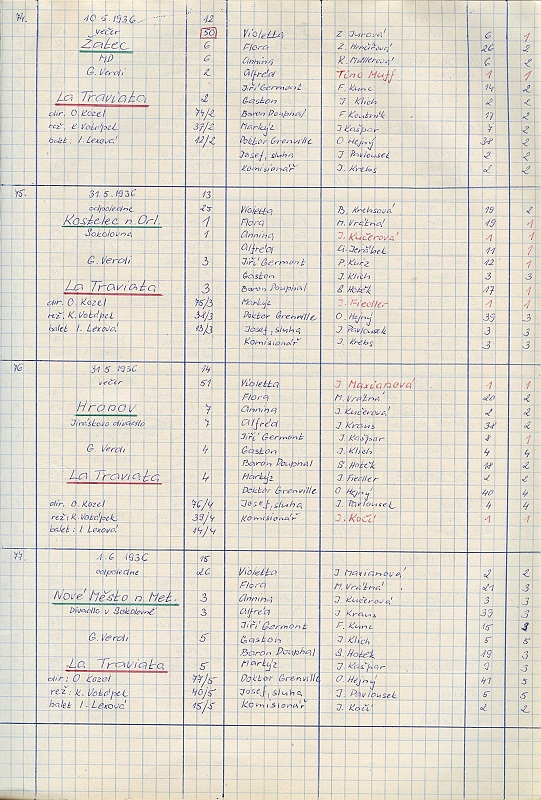 74. 10.5.1936 12
večer 50 Violetta Z. Jurová 6 1
Žatec 6 Flora Z. Hrnčířová 26 2
MD 6 Annina K. Müllerová 6 2
G. Verdi 2 Alfréd Tino Muff 1 1
Jiří Germont F. Kunc 14 2
La Traviata 2 Gaston J. Klich 2 2
dir. O. Kozel 74/2 Baron Douphal F. Koutník 17 2
rež. K. Votápek 37/2 Markýz J. Kašpar 7 2
balet: I. Lexová 12/2 Doktor Grenville O. Hejný 38 2
Josef, sluha J. Pavlousek 2 2
Komisionář J. Krebs 2 2
75. 31.5.1936 13
odpoledne 25 Violetta B. Krehsová 19 2
Kostelec n. Orl. 1 Flora M. Vrátná 19 1
Sokolovna 1 Annina J. Kučerová 1 1
Alfréd A. Jeřábek 11 1
G. Verdi 3 Jiří Germont P. Kurz 12 1
Gaston J. Klich 3 3
La Traviata 3 Baron Douphal S. Hoték 17 1
dir. O. Kozel 75/3 Markýz J. Fiedler 1 1
rež. K. Votápek 38/3 Doktor Grenville O. Hejný 39 3
balet I. Lexová 13/3 Josef, sluha J. Pavlousek 3 3
Komisionář J. Krebs 3 3
76 31.5.1936 14
večer 51 Violetta J. Maxianová 1 1
Flora M. Vrátná 20 2
Hronov 7 Annina J. Kučerová 2 2
Jiráskovo divadlo 7 Alfréd J. Kraus 38 2
Jiří Germont J. Kašpar 8 1
G. Verdi 4 Gaston J. Klich 4 4
Baron Douphal S. Hoték 18 2
La Traviata 4 Markýz J. Fiedler 2 2
Doktor Grenville O. Hejný 40 4
dir. O. Kozel 76/4 Josef, sluha J. Pavlousek 4 4
rež: K. Votápek 39/4 Komisionář J. Kočí 1 1
balet: I. Lexová 14/4
77. 1.6.1936 15
odpoledne 26 Violetta J. Maxianová 2 2
Flora M. Vrátná 21 3
Nové Město n. Met. 3 Annina J. Kučerová 3 3
Divadlo v Sokolovně 3 Alfréd J. Kraus 39 3
Jiří Germont F. Kunc 15 3
G. Verdi 5 Gaston J. Klich 5 5
Baron Douphal S. Hoték 19 3
La Traviata 5 Markýz J. Kašpar 9 3
dir: O. Kozel 77/5 Doktor Grenville O. Hejný 41 5
rež: K. Votápek 40/5 Josef, sluha J. Pavlousek 5 5
balet I. Lexová 15/5 Komisionář J. Kočí 2 2